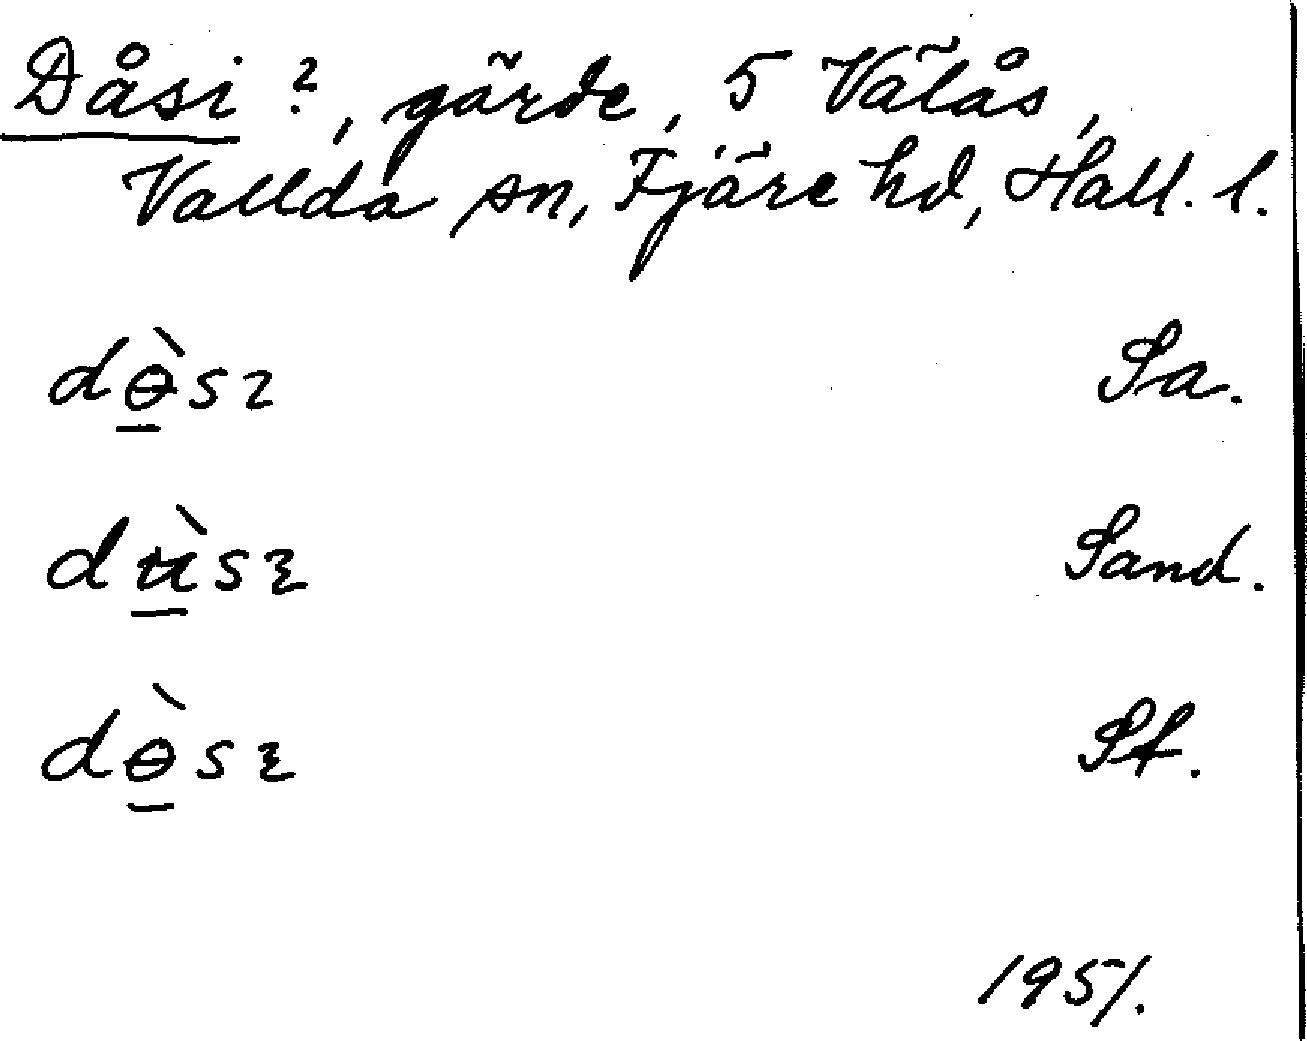 Dåsi?, gärde, 5 Välås,
Vallda sn, Fjäre hd, Hall. l.
dɵ̱̀sɿ Sa.
dṉ̀sꙅ Sand.
dɵ̱̀sꙅ St.
1951.